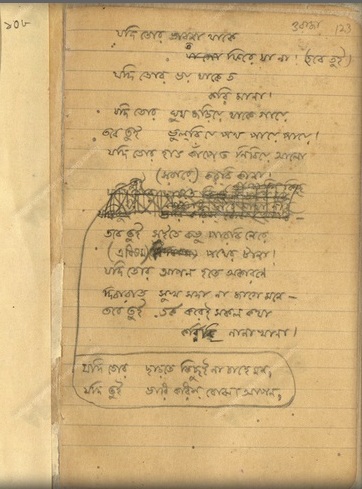 ১০৮
123
যদি তোর ভাবনা থাকে
ফিরে যা না! (তবে তুই)
যদি তোর ভয় থাকে ত
করি মানা!
যদি তোর ঘুম জড়িয়ে থাকে গায়ে
তবে তুই ভুলবি যে পথ পায়ে পায়ে!
যদি তোর হাত কাঁপে ত নিবিয়ে আলো
(সবারে) করবি কানা!
তবে তুই সইতে কভু পারবি নেরে
(এ বিষম) পথের টানা!
যদি তোর আপন হতে অকারণে
দিবারাত সুখ সদা না জাগে মনে –
তবে তুই তর্ক করেই সকল কথা
করিবি নানা খানা!
যদি তোর ছাড়তে কিছুই না চাহে মন,
যদি তুই ভারি করিস বোঝা আপন,